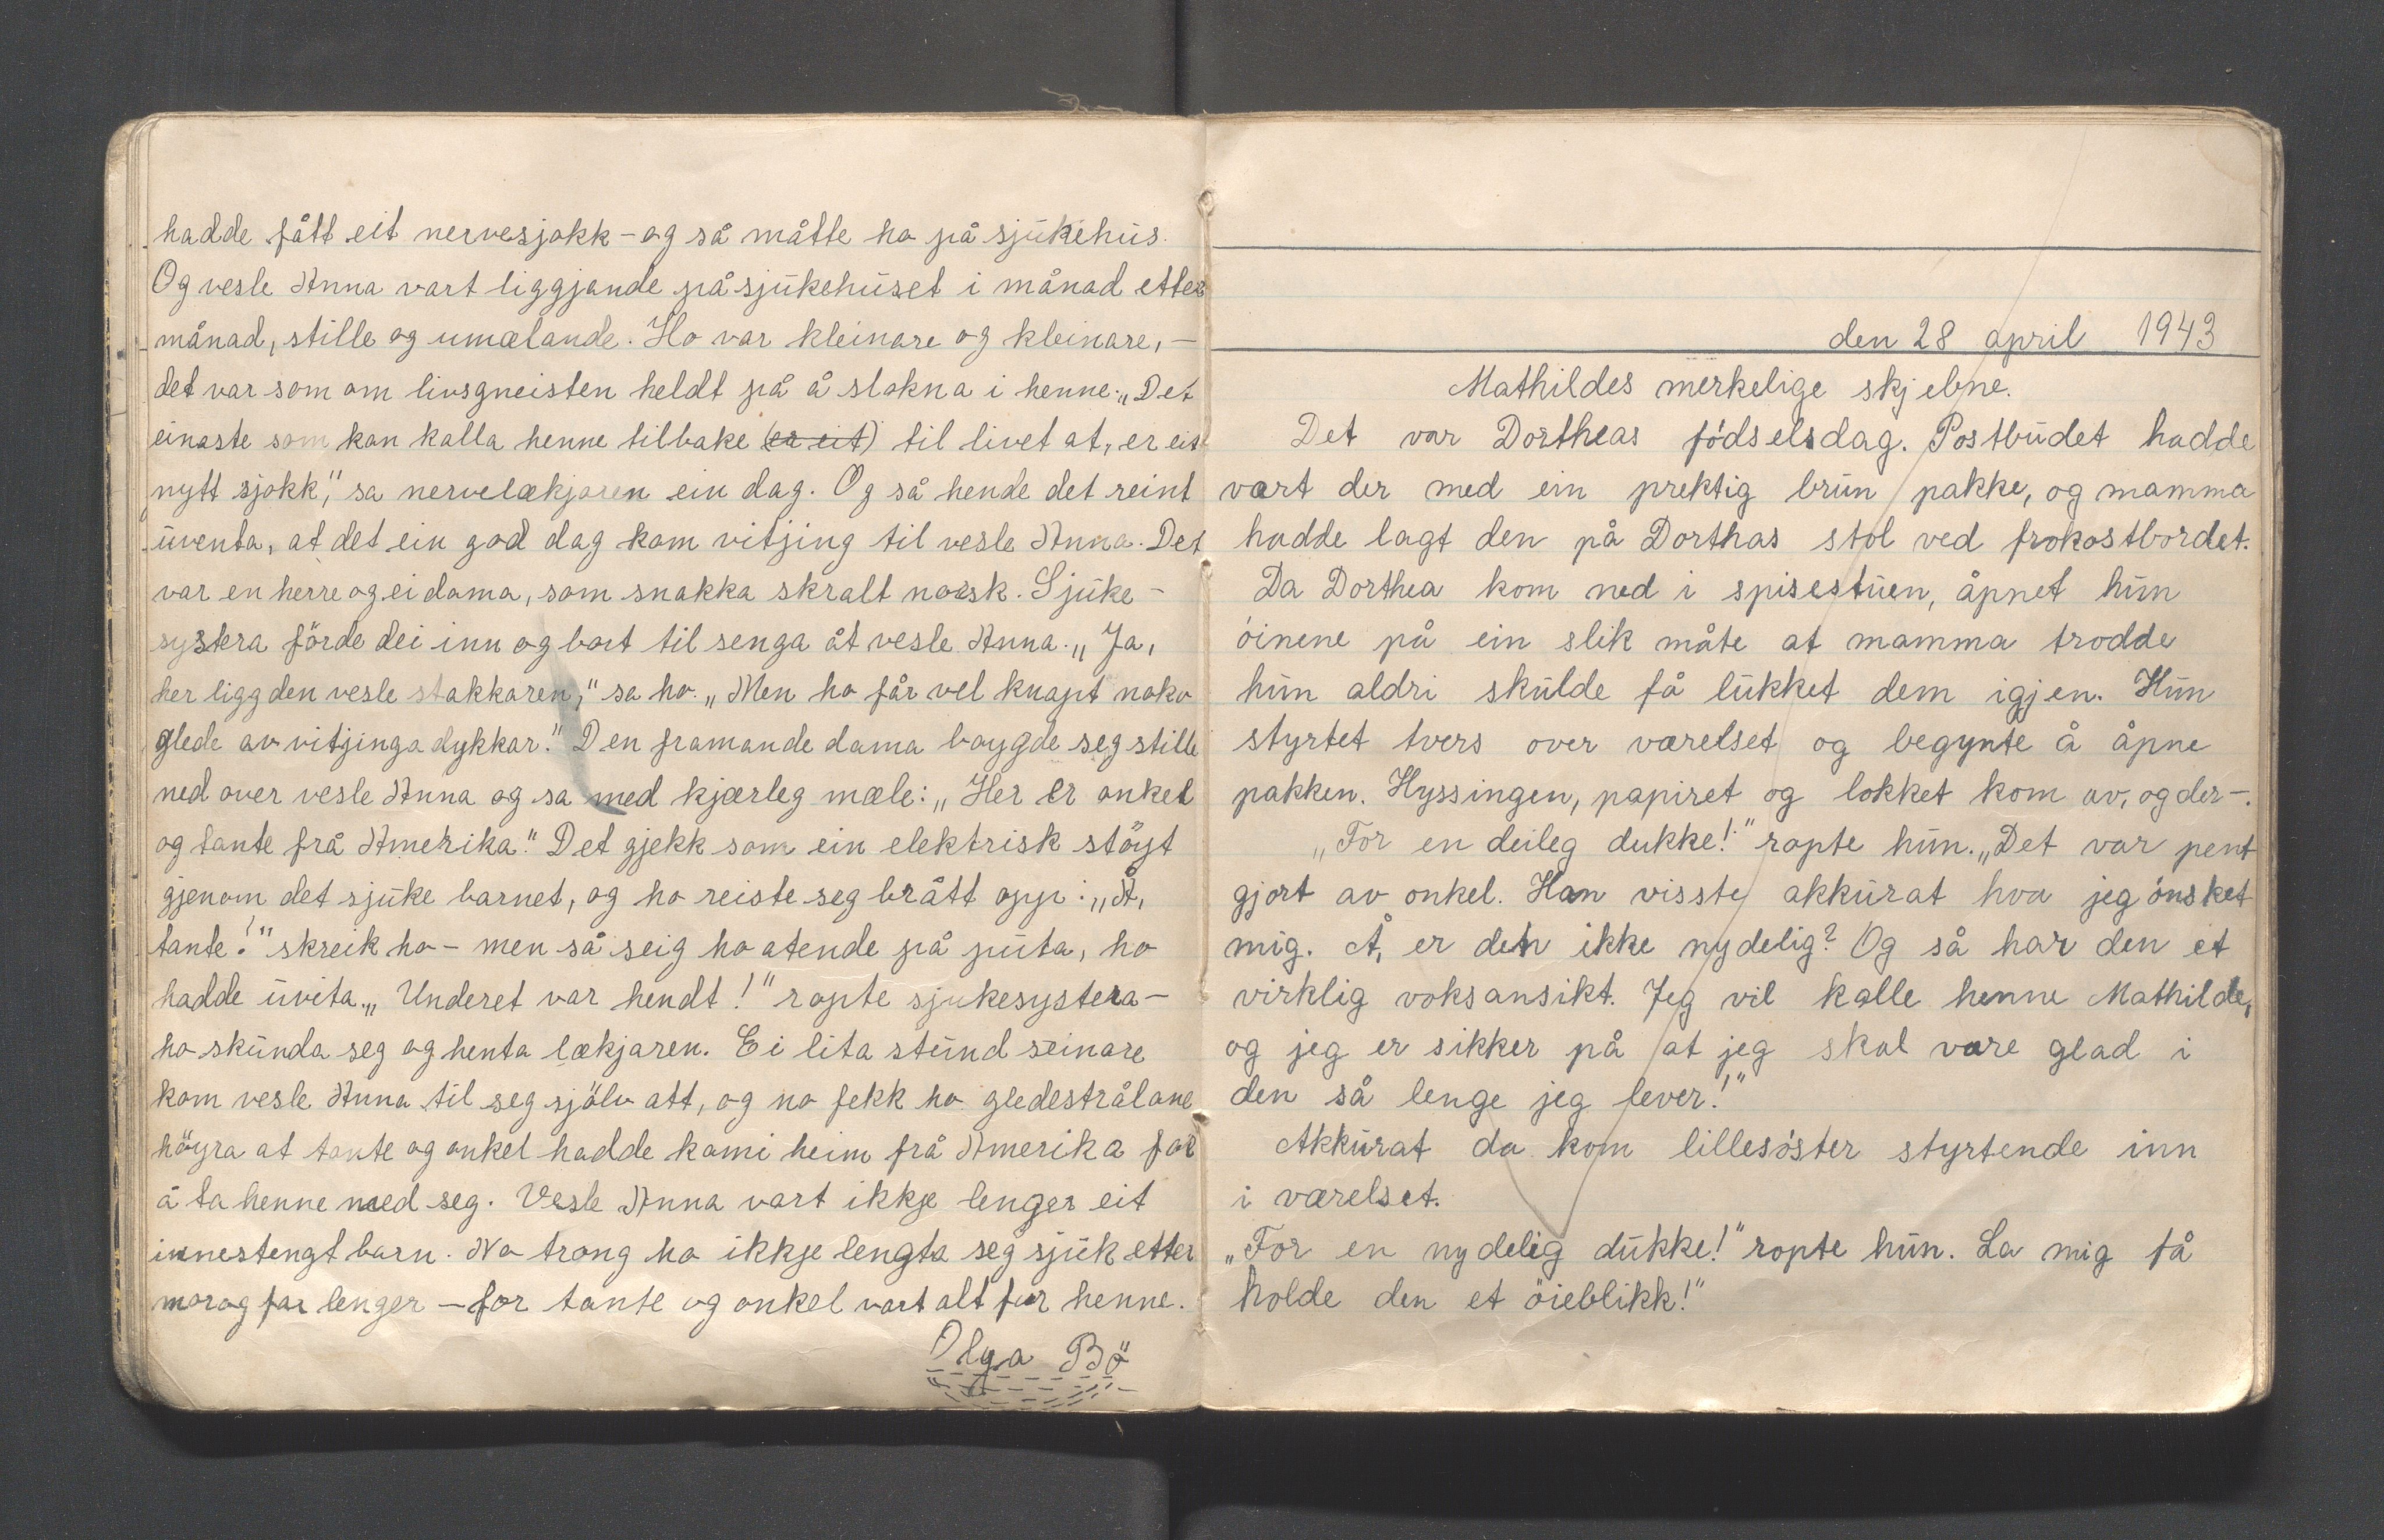 hadde fått eit nervesjokk – og så måtte ho på sjukehus.
Og vesle Anna vart liggjande på sjukehuset i månad etter
månad, stille og umælande. Ho var kleinare og kleinare, –
det var som om livsgneisten heldt på å slokna i henne. „Det
einaste som kan kalla henne tilbake (er eit) til livet at, er eit
nytt sjokk," sa nervelækjaren ein dag. Og så hende det reint
uventa, at det ein god dag kom vitjing til vesle Anna. Det
var en herre og ei dama, som snakka skralt norsk. Sjuke-
systera förde dei inn og bort til senga åt vesle Anna. „Ja,
her ligg den vesle stakkaren," sa ho. „Men ho får vel knapt noko
glede av vitjinga dykkar." Den framande dama boygde seg stille
ned over vesle Anna og sa med kjærleg mæle: „Her er onkel
og tante frå Amerika." Det gjekk som ein elektrisk stöyt
gjenom det sjuke barnet, og ho reiste seg brått opp: „Å,
tante!" skreik ho – men så seig ho atende på puta, ho
hadde uvita. „Underet var hendt!" ropte sjukesystera –
ho skunda seg og henta lækjaren. Ei lita stund seinare
kom vesle Anna til seg sjölv att, og no fekk ho gledestrålane
höyra at tante og onkel hadde komi heim frå Amerika for
å ta henne med seg. Vesle Anna vart ikkje lenger eit
innestengt barn. No trong ho ikkje lengta seg sjuk etter
mor og far lenger – for tante og onkel vart alt for henne.
Olga Bö
den 28 april 1943
Mathildes merkelige skjebne.
Det var Dortheas födselsdag. Postbudet hadde
vært der med ein prektig brun pakke, og mamma
hadde lagt den på Dorthas stol ved frokostbordet.
Da Dorthea kom ned i spisestuen, åpnet hun
öinene på ein slik måte at mamma trodde
hun aldri skulde få lukket dem igjen. Hun
styrtet tvers over værelset og begynte å åpne
pakken. Hyssingen, papiret og lokket kom av, og der –.
„For en deileg dukke!" ropte hun. „Det var pent
gjort av onkel. Han visste akkurat hva jeg önsket
mig. Å, er den ikke nydelig? Og så har den et
virklig voksansikt. Jeg vil kalle henne Mathilde,
og jeg er sikker på at jeg skal være glad i
den så lenge jeg lever!"
Akkurat da kom lillesöster styrtende inn
i værelset.
„For en nydelig dukke!" ropte hun. La mig få
holde den et öieblikk!"